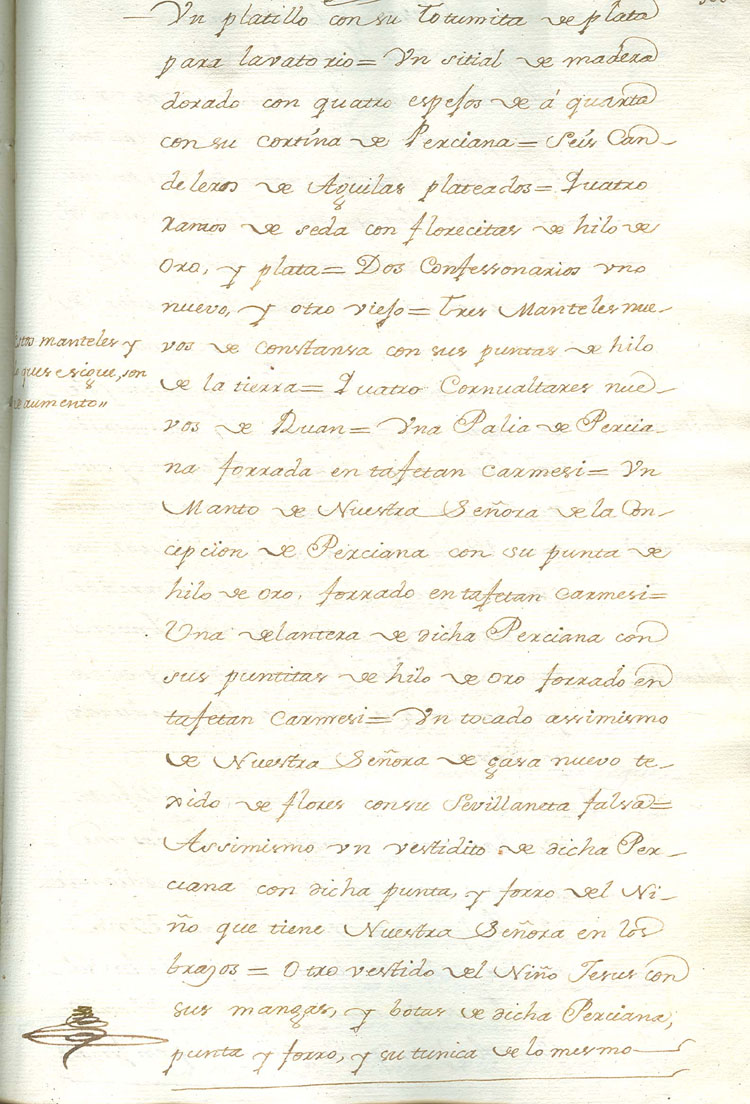 Vn platillo con su totumita de plata
para lavatorio= Vn sitial de madera
dorado con quatro espejos de á quarta
con su cortína de Perciana= Seis Can-
deleros de Aguilas plateados= Quatro
ramos de seda con florecitas de hilo de
oro, y plata= Dos Confessonarios vno
nuevo, y otro viejo= Tres Manteles nue-
vos de constansa con sus puntas de hilo
de la tierra= Quatro Cornualtares nue-
vos de Ruan= Vna Palia de Percia-
na forrada en tafetan carmesi= Vn
Manto de Nuestra Señora de la Con-
cepcion de Perciana con su punta de
hilo de oro, forrado en tafetan carmesi=
Una delantera de dicha Perciana con
sus puntitas de hilo de oro forrado en
tafetan carmesi= Vn tocado assimismo
de Nuestra Señora de gasa nuevo te-
xido de flores con su Sevillaneta falsa=
Assimismo vn vestidito de dicha Per-
ciana con dicha punta, y forro del Ni-
ño que tiene Nuestra Señora en los
brazos= Otro vestido del Niño Jesus con
sus mangas, y botas de dicha Perciana,
punta y forro, y su tunica de lo mesmo
manteles y
que se sigue, son
de aumento